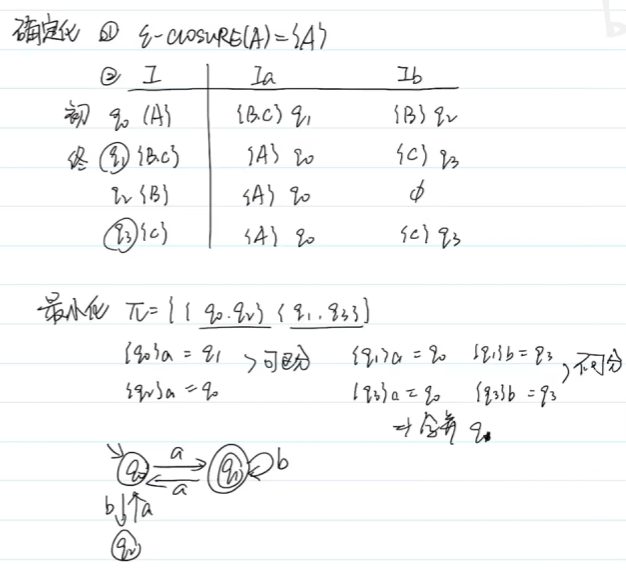 确定化 ① ε-CLOSURE(A)={A}
② I Ia Ib
初 q0 {A} {B.C} q1 {B} q2
终 q1 {B.C} {A} q0 {C} q3
q2 {B} {A} q0 ϕ
q3 {C} {A} q0 {C} q3
最小化 π={{q0.q2} {q1.q3}}
{q0}a = q1 >可分 {q1}a = q0 {q1}b = q3 >不可分
{q2}a = q0 {q3}a = q0 {q3}b = q3
⇒合并 q
q0 a q1 b
a
b a
q2